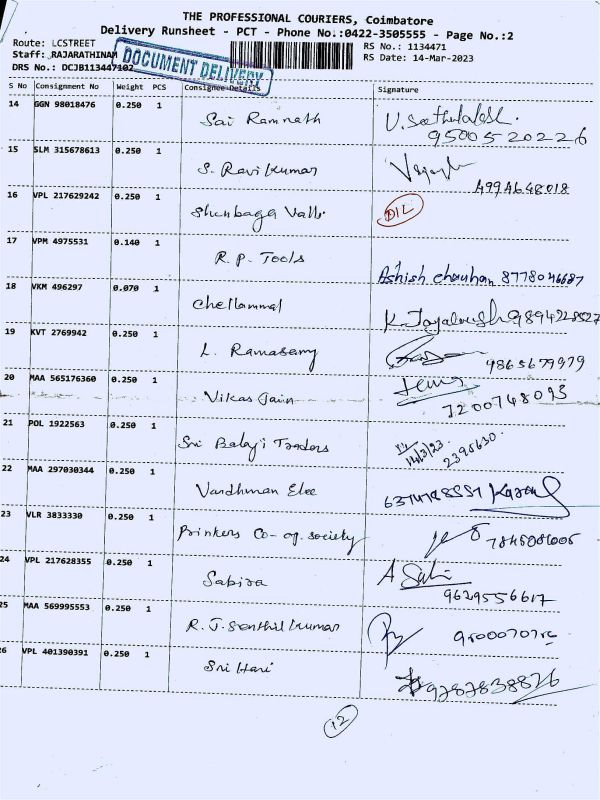 THE PROFESSIONAL COURIERS, Coimbatore
Delivery Runsheet - PCT - Phone No.:0422-3505555 - Page No.:2
Route: LCSTREET RS No.: 1134471
Staff: RAJARATHINAM RS Date: 14-Mar-2023
DRS No.: DCJB113447102
DOCUMENT DELIVERY
S No Consignment No Weight PCS Consignee Details Signature
14 GGN 98018476 0.250 1 Sai Ramnath
9500520226
15 SLM 315678613 0.250 1 S. Ravi Kumar
16 VPL 217629242 0.250 1 Shenbaga Valli D/L
17 VPM 4975531 0.140 1 R.P. Tools Ashish chauhan 8778046687
18 VKM 496297 0.070 1 Chellammal 9894228527
19 KVT 2769942 0.250 1 L. Ramasamy 9865679979
20 MAA 565176360 0.250 1 Vikas Jain 7200748093
21 POL 1922563 0.250 1 Sri Balaji Traders
14/3/23. 2395630.
22 MAA 297030344 0.250 1 Vardhman Elec
23 VLR 3833330 0.250 1 Printers Co-op. society
24 VPL 217628355 0.250 1 Sabira
9629556617
25 MAA 569995553 0.250 1 R.J. Senthil Kumar
26 VPL 401390391 0.250 1 Sri Hari 9787838876
12